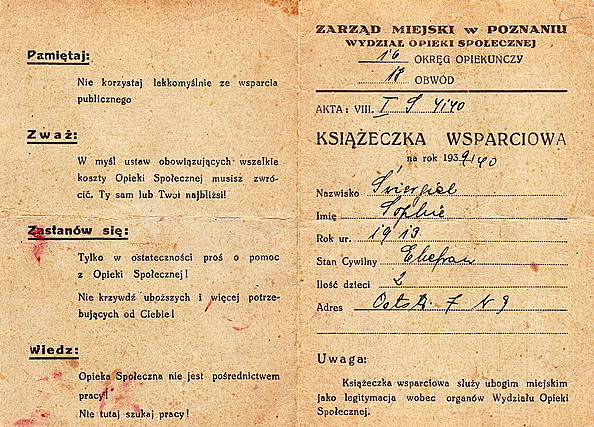 Pamiętaj:
Nie korzystaj lekkomyślnie ze wsparcia
publicznego
Zważ:
W myśl ustaw obowiązujących wszelkie
koszty Opieki Społecznej musisz zwró-
cić. Ty sam lub Twoi najbliżsi!
Zastanów się:
Tylko w ostateczności proś o pomoc
z Opieki Społecznej!
Nie krzywdź uboższych i więcej potrze-
bujących od Ciebie!
Wiedz:
Opieka Społeczna nie jest pośrednictwem
pracy!
Nie tutaj szukaj pracy!
ZARZĄD MIEJSKI w POZNANIU
WYDZIAŁ OPIEKI SPOŁECZNEJ
16 OKRĘG OPIEKUŃCZY
18 OBWÓD
AKTA: VIII. I S 4140
KSIĄŻECZKA WSPARCIOWA
na rok 1939/40
Nazwisko
Imię Sophie
Rok ur. 1913
Stan Cywilny Ehefrau
Ilość dzieci 2
Adres 7 N 9
Uwaga:
Książeczka wsparciowa służy ubogim miejskim
jako legitymacja wobec organów Wydziału Opieki
Społecznej.